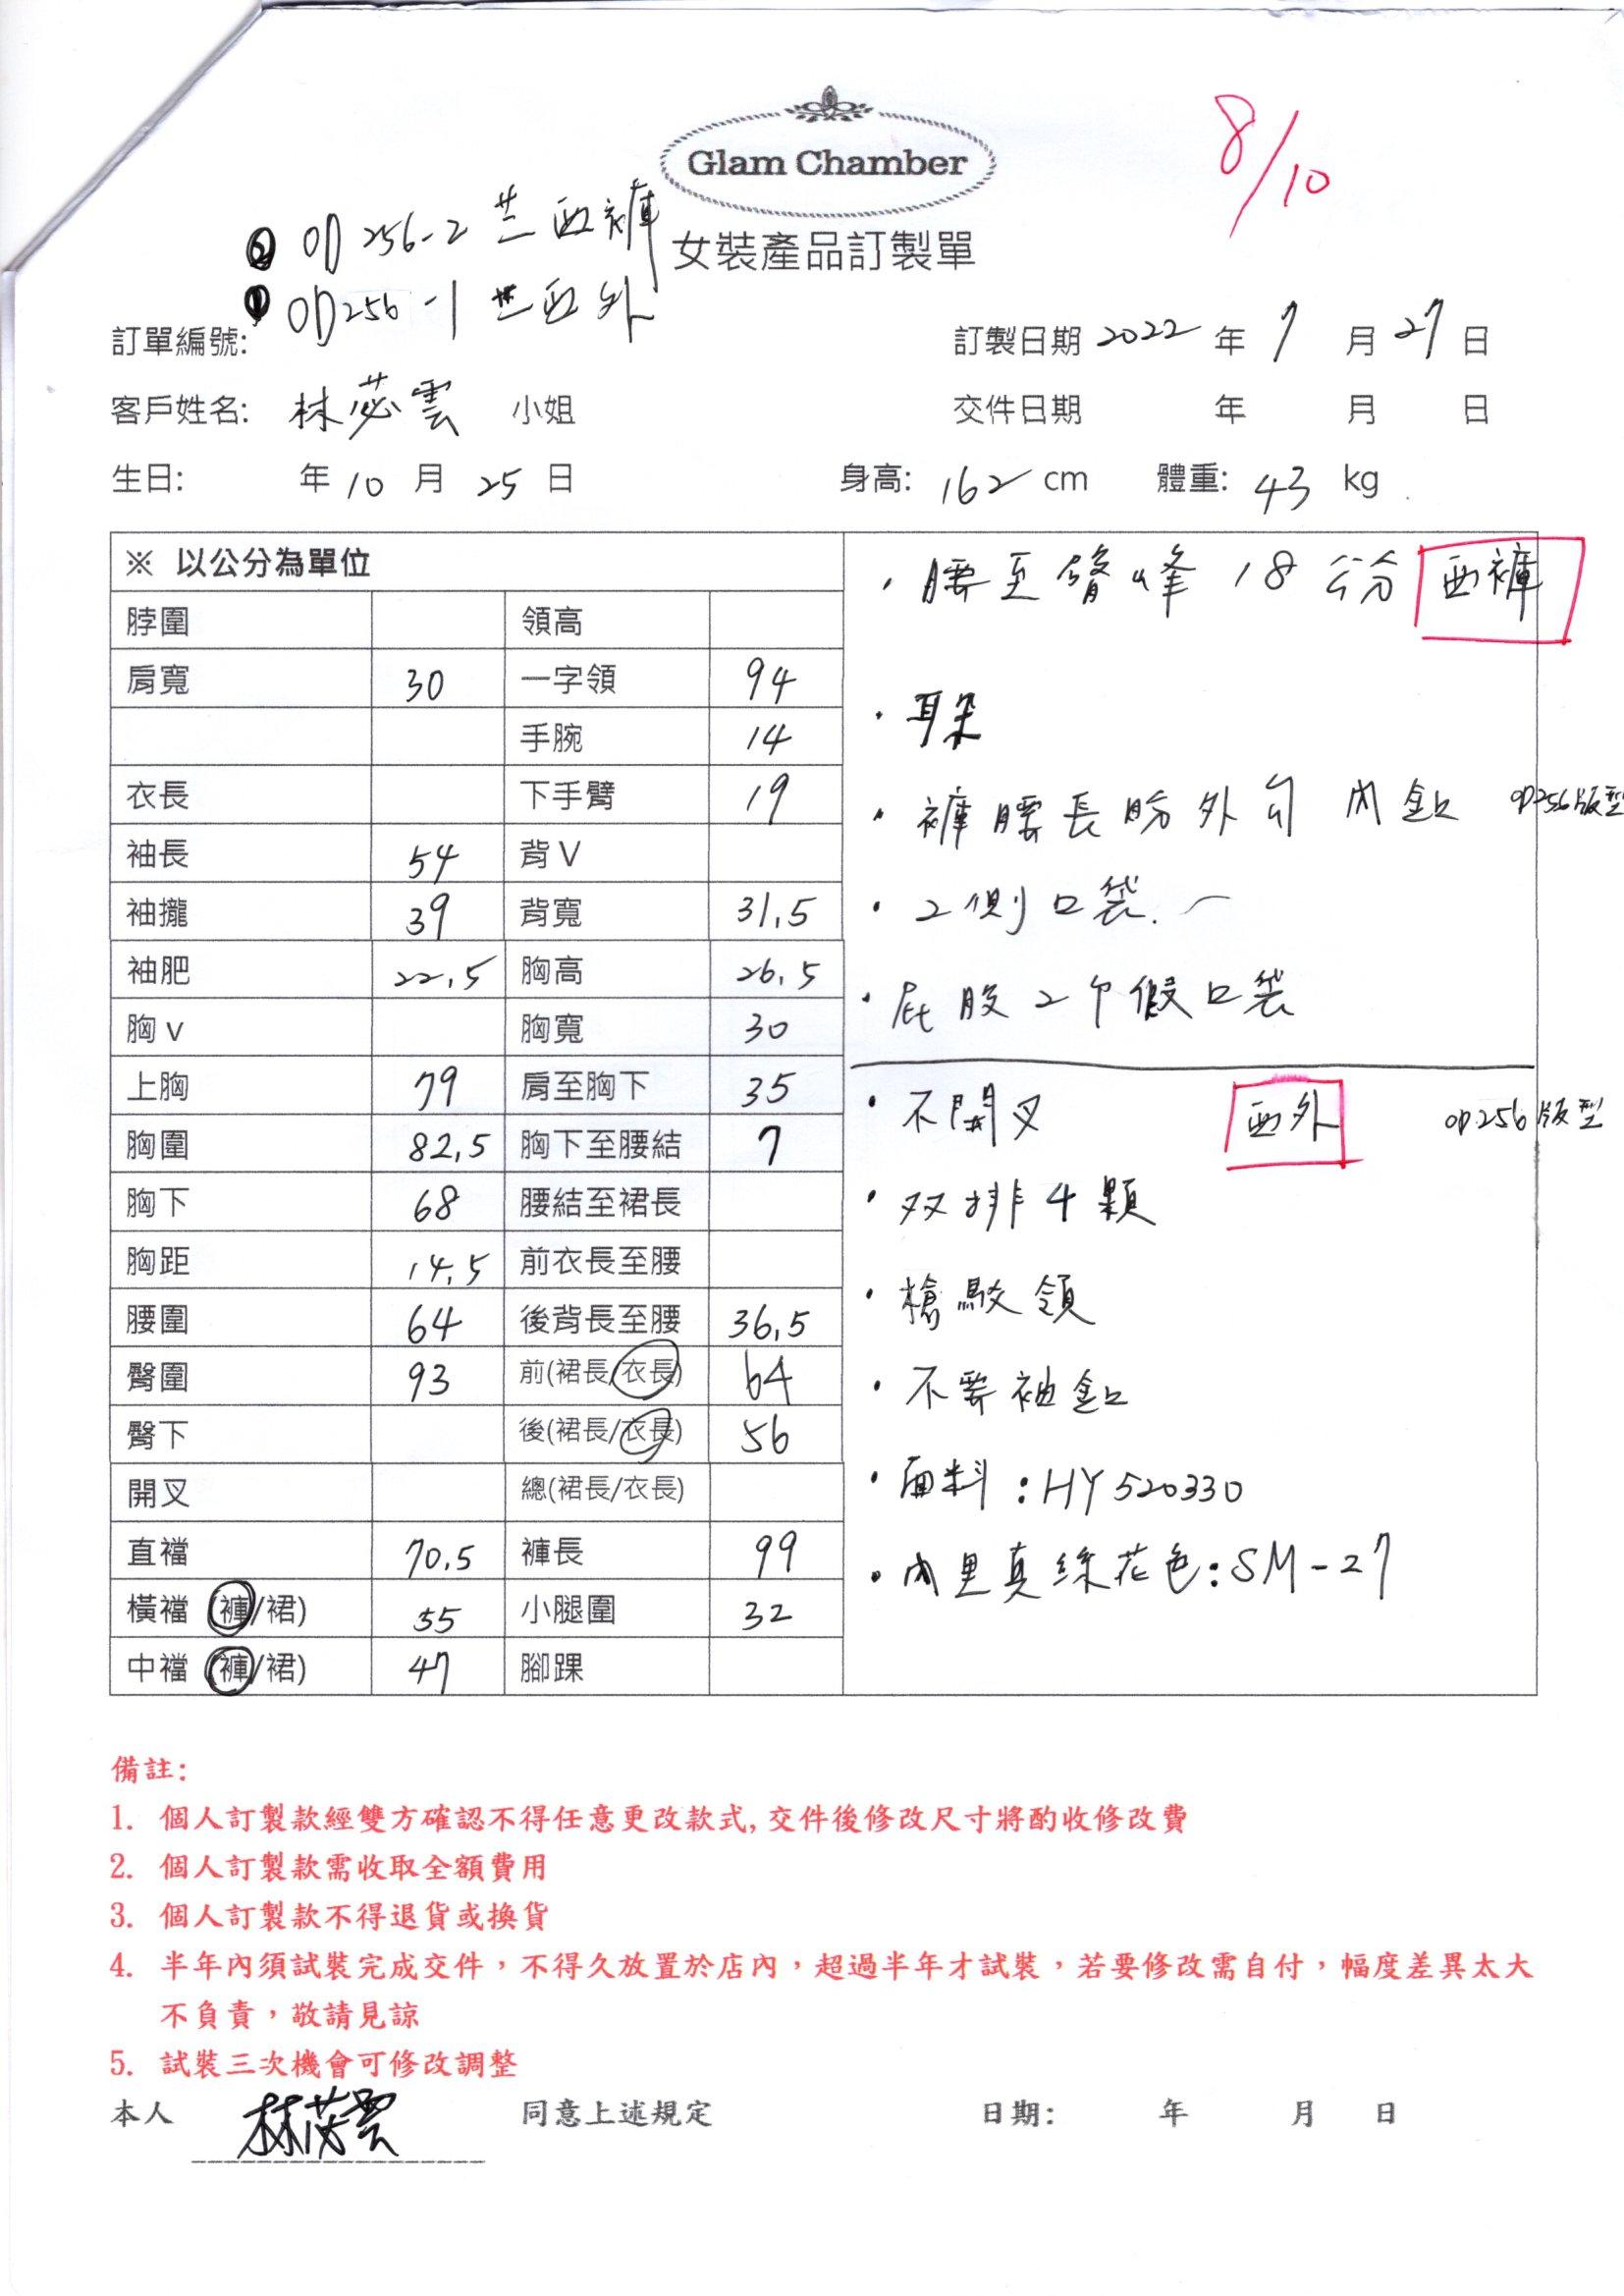 8/10
Glam Chamber
② OD256-2 芷西褲
女裝產品訂製單
① OD256-1 芷西外
訂單編號:
訂製日期 2022 年 7 月 27 日
客戶姓名: 林苾雲 小姐
交件日期 年 月 日
生日: 年 10 月 25 日 身高: 162 cm 體重: 43 kg
※ 以公分為單位
脖圍 領高
肩寬 30 一字領 94
手腕 14
衣長 下手臂 19
袖長 54 背V
袖攏 39 背寬 31.5
袖肥 22.5 胸高 26.5
胸v 胸寬 30
上胸 79 肩至胸下 35
胸圍 82.5 胸下至腰結 7
胸下 68 腰結至裙長
胸距 14.5 前衣長至腰
腰圍 64 後背長至腰 36.5
臀圍 93 前(裙長/衣長) 64
臀下 後(裙長/衣長) 56
開叉 總(裙長/衣長)
直襠 70.5 褲長 99
橫襠 (褲/裙) 55 小腿圍 32
中襠 (褲/裙) 47 腳踝
· 腰至臀峰 18 公分 西褲
· 耳朵
· 褲腰長方外勾 內釦 OD256版型
· 2側口袋.
· 屁股2个假口袋
· 不開叉 西外 OD256版型
· 双排4顆
· 槍駁領
· 不要袖釦
· 面料:HY520330
· 內里真絲花色:SM-27
備註:
1. 個人訂製款經雙方確認不得任意更改款式,交件後修改尺寸將酌收修改費
2. 個人訂製款需收取全額費用
3. 個人訂製款不得退貨或換貨
4. 半年內須試裝完成交件,不得久放置於店內,超過半年才試裝,若要修改需自付,幅度差異太大
不負責,敬請見諒
5. 試裝三次機會可修改調整
本人 林苾雲 同意上述規定 日期: 年 月 日